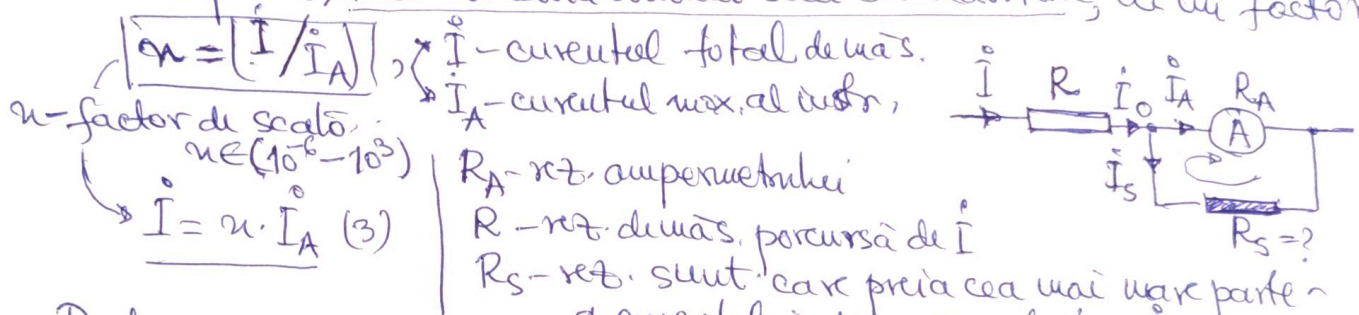 , cu un factor
n = [İ/İ_A], İ - curentul total de măs.
İ_A - curentul max. al instr,
n - factor de scală
n∈(10⁻⁶ - 10³)
İ = n · İ_A (3)
R_A - rez. ampermetrului
R - rez. de măs. parcursă de İ
R_S - rez. șunt care preia cea mai mare parte
İ R İ_0 İ_A R_A
A
İ_S
R_S = ?